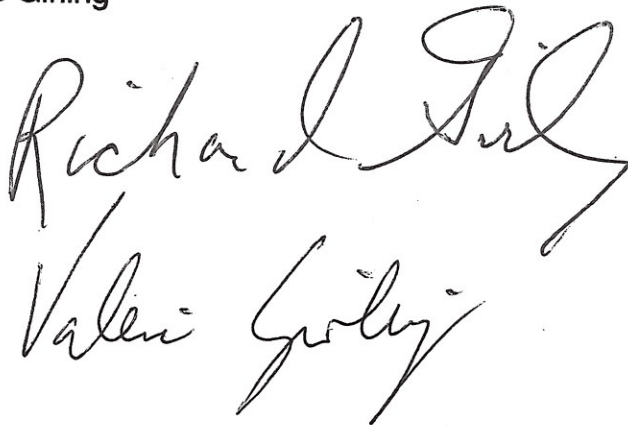 Richard Girling
Valerie Girling